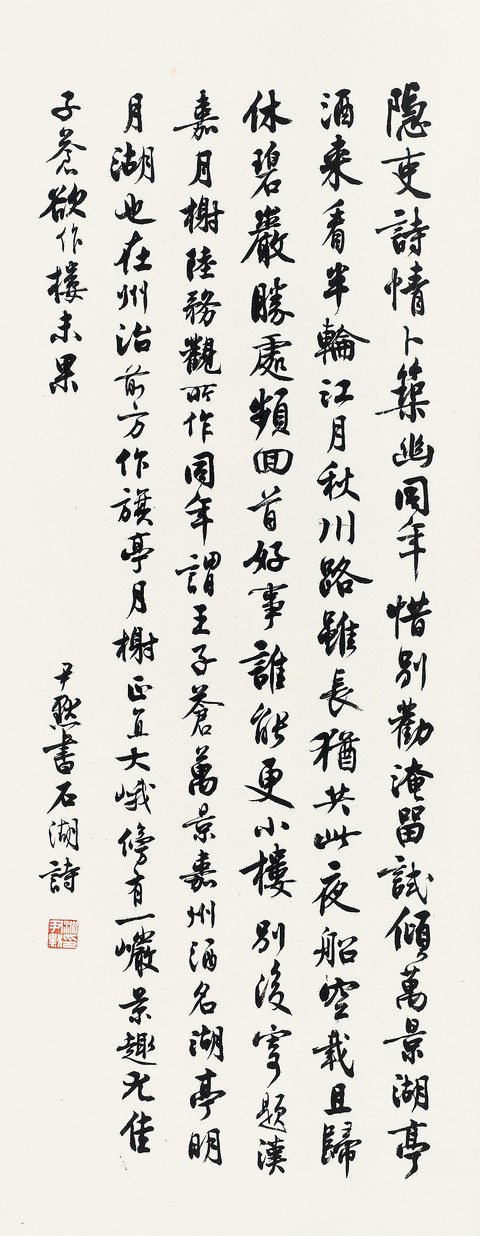 隱吏詩情卜築幽同年惜別勸淹留試傾萬景湖亭
酒来看半輪江月秋川路雖長猶共此夜船空載且歸
休碧巖勝處頻回首好事誰能更小樓 別後寄題漢
嘉月榭陸務觀所作同年謂王子蒼萬景嘉州酒名湖亭明
月湖也在州治前方作旗亭月榭正直大峨傍有一巖景趣尤佳
子蒼欲作樓未果
尹默書石湖詩